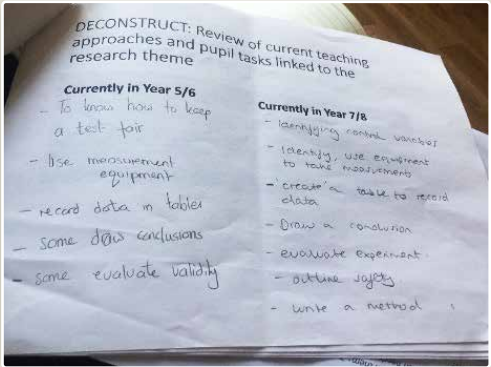 DECONSTRUCT: Review of current teaching
approaches and pupil tasks linked to the
research theme
Currently in Year 5/6
- To know how to keep
a test fair
- Use measurement
equipment
- record data in tables
- some draw conclusions
- some evaluate validity
Currently in Year 7/8
- Identifying control variables
- Identify, use equipment
to take measurements
- 'create' a table to record
data
- Draw a conclusion
- evaluate experiment.
- outline safety
- write a method